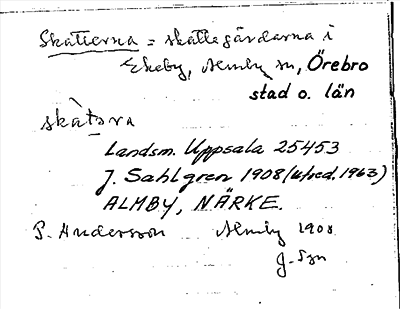 Skattarna = skattegårdarna i
Ekeby, Almby sn, Örebro
stad o. län
skàtạra
Landsm. Uppsala 25453
J. Sahlgren 1908 (utred. 1963)
ALMBY, NÄRKE.
P. Andersson Almby 1908
J. Sgn